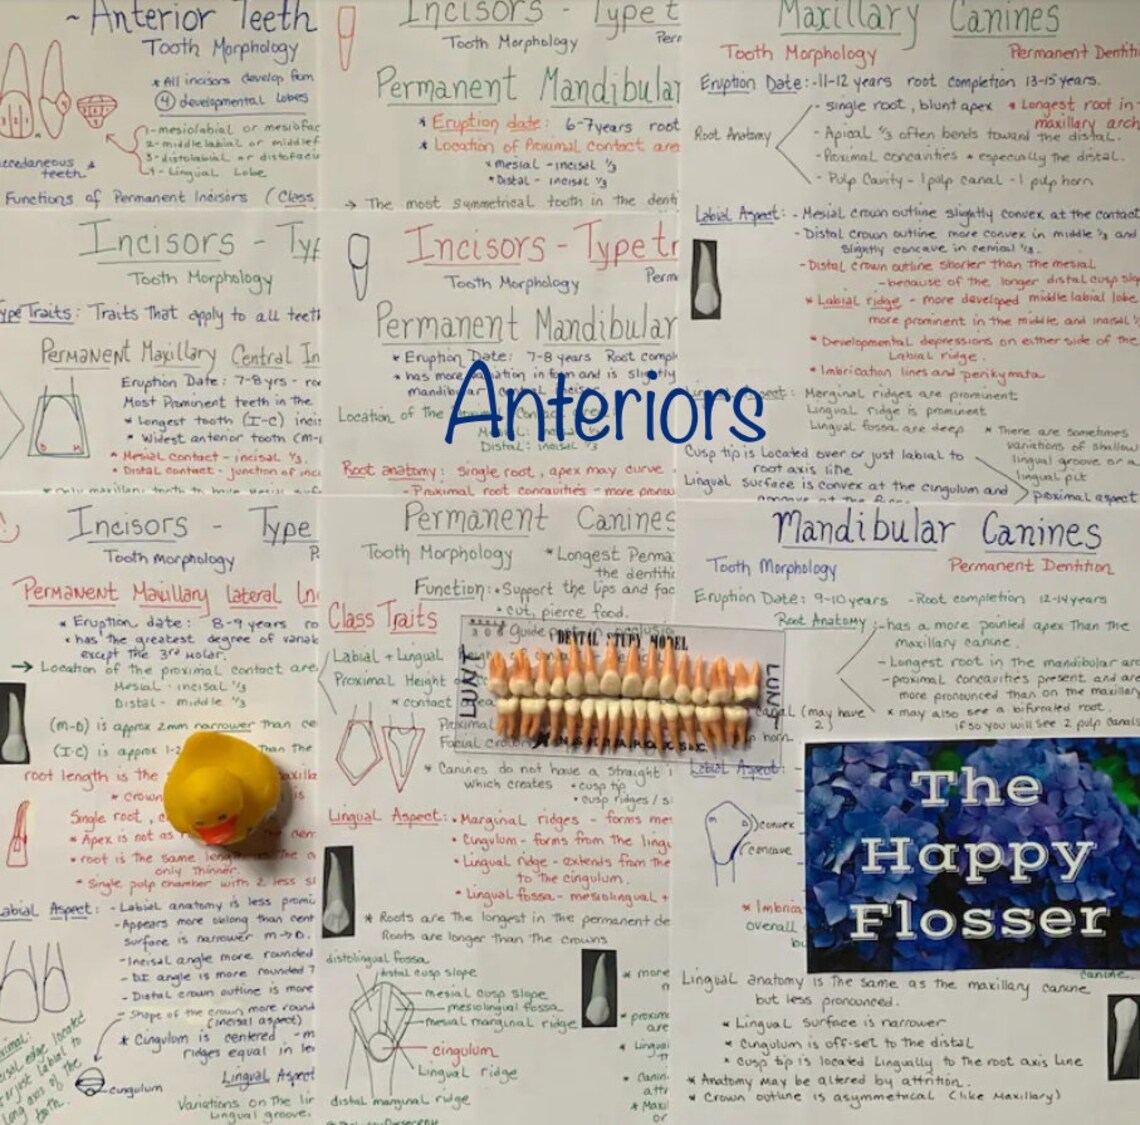 ~ Anterior Teeth
Tooth Morphology
* All incisors develop from
④ developmental lobes
1- mesiolabial or mesiofac
2- middle labial or middlef
3- distolabial or distofacia
4- Lingual Lobe
ccedaneous *
teeth
Functions of Permanent Incisors (Class
Incisors - Type t
Tooth Morphology
Perm
Permanent Mandibular
* Eruption date: 6-7 years root
* Location of Proximal contact are
* mesial - incisal 1/3
* Distal - incisal 1/3
→ The most symmetrical tooth in the denti
Maxillary Canines
Tooth Morphology
Permanent Dentiti
Eruption Date: -11-12 years root completion 13-15 years.
Root Anatomy
- single root, blunt apex * Longest root in
maxillary arch
- Apical 1/3 often bends toward the distal.
- Proximal concavities * especially the distal.
- Pulp Cavity - 1 pulp canal - 1 pulp horn
Labial Aspect: - Mesial crown outline slightly convex at the contact
- Distal crown outline more convex in middle 1/3 and
slightly concave in cervical 1/3.
- Distal crown outline shorter than the mesial
- because of the longer distal cusp slo
* Labial ridge - more developed middle labial lobe
more prominent in the middle and incisal 1/
* Developmental depressions on either side of the
Labial ridge.
* Imbrication lines and perikymata
Aspect: Marginal ridges are prominent
Lingual ridge is prominent
Lingual fossa are deep
* There are sometimes
variations of shallow
lingual groove or a
lingual pit
Cusp tip is Located over or just labial to
root axis line
Lingual surface is convex at the cingulum and
proximal aspect
Incisors - Typ
Tooth Morphology
ype Traits: Traits that apply to all teeth
Permanent Maxillary Central In
Eruption Date: 7-8 yrs - roo
Most Prominent teeth in the
* Longest tooth (I-C) incis
* Widest anterior tooth (m-
* Mesial contact - incisal 1/3.
* Distal contact - junction of inci
D M
Incisors - Type tr
Tooth Morphology
Perm
Permanent Mandibular
* Eruption Date: 7-8 years Root compl
* has more variation in form and is slightly
mandibular central incisor
Location of the Contact area:
Mesial: incisal 1/3
Distal: incisal 1/3
Root anatomy: single root, apex may curve
- Proximal root concavities - more pronou
Anteriors
Incisors - Type
Tooth Morphology
P
Permanent Maxillary Lateral In
* Eruption date: 8-9 years ro
* has the greatest degree of variab
except the 3rd Molar.
→ Location of the proximal contact are
Mesial - incisal 1/3
Distal - middle 1/3
(m-D) is approx 2mm narrower than ce
(I-C) is approx 1-2 than the
root length is the maxilla
* crown is
Single root, c
* Apex is not as
* root is the same length
only thinner.
* Single pulp chamber with 2 less sh
Labial Aspect: - Labial anatomy is less promi
- Appears more oblong than cent
surface is narrower m→D.
- Incisal angle more rounded
- DI angle is more rounded T
- Distal crown outline is more
- Shape of the crown more round
(incisal aspect)
* Cingulum is centered - m
ridges equal in le
Lingual Aspect
cingulum
Variations on the lin
Lingual groove.
edge located
or just labial to
long axis of the
tooth.
Permanent Canines
Tooth Morphology
* Longest Perma
the dentiti
Function: * Support the lips and fac
* cut, pierce food.
* Guide
Class Traits
Labial + Lingual
Proximal Height o
* contact
Proximal
Facial crown
DENTAL STUDY MODEL
LUNT
LUNT
* Canines do not have a straight i
which creates * cusp tip
* cusp ridges / sl
Lingual Aspect: * Marginal ridges - forms mes
* Cingulum - forms from the lingu
* Lingual ridge - extends from the
to the cingulum.
* Lingual fossa - mesiolingual +
* Roots are the longest in the permanent de
Roots are longer than the crowns
distolingual fossa
distal cusp slope
mesial cusp slope
mesiolingual fossa
mesial marginal ridge
cingulum
Lingual ridge
distal marginal ridge
* more
* proxim
are
* Lingual
* Canin
attr
* Maxil
or
Mandibular Canines
Tooth Morphology
Permanent Dentition
Eruption Date: 9-10 years - Root completion 12-14 years
Root Anatomy: - has a more pointed apex than the
maxillary canine.
- Longest root in the mandibular arc
- proximal concavities present and are
more pronounced than on the maxillar
* may also see a bifurated root.
if so you will see 2 pulp canals
canal (may have
2)
horn
Labial Aspect:
M D
convex
concave
* Imbrica
overall
bu
The
Happy
Flosser
canine.
Lingual anatomy is the same as the maxillary canine
but less pronounced.
* Lingual surface is narrower
* Cingulum is off-set to the distal
* cusp tip is located Lingually to the root axis line
* Anatomy may be altered by attrition.
* Crown outline is asymmetrical (like Maxillary)